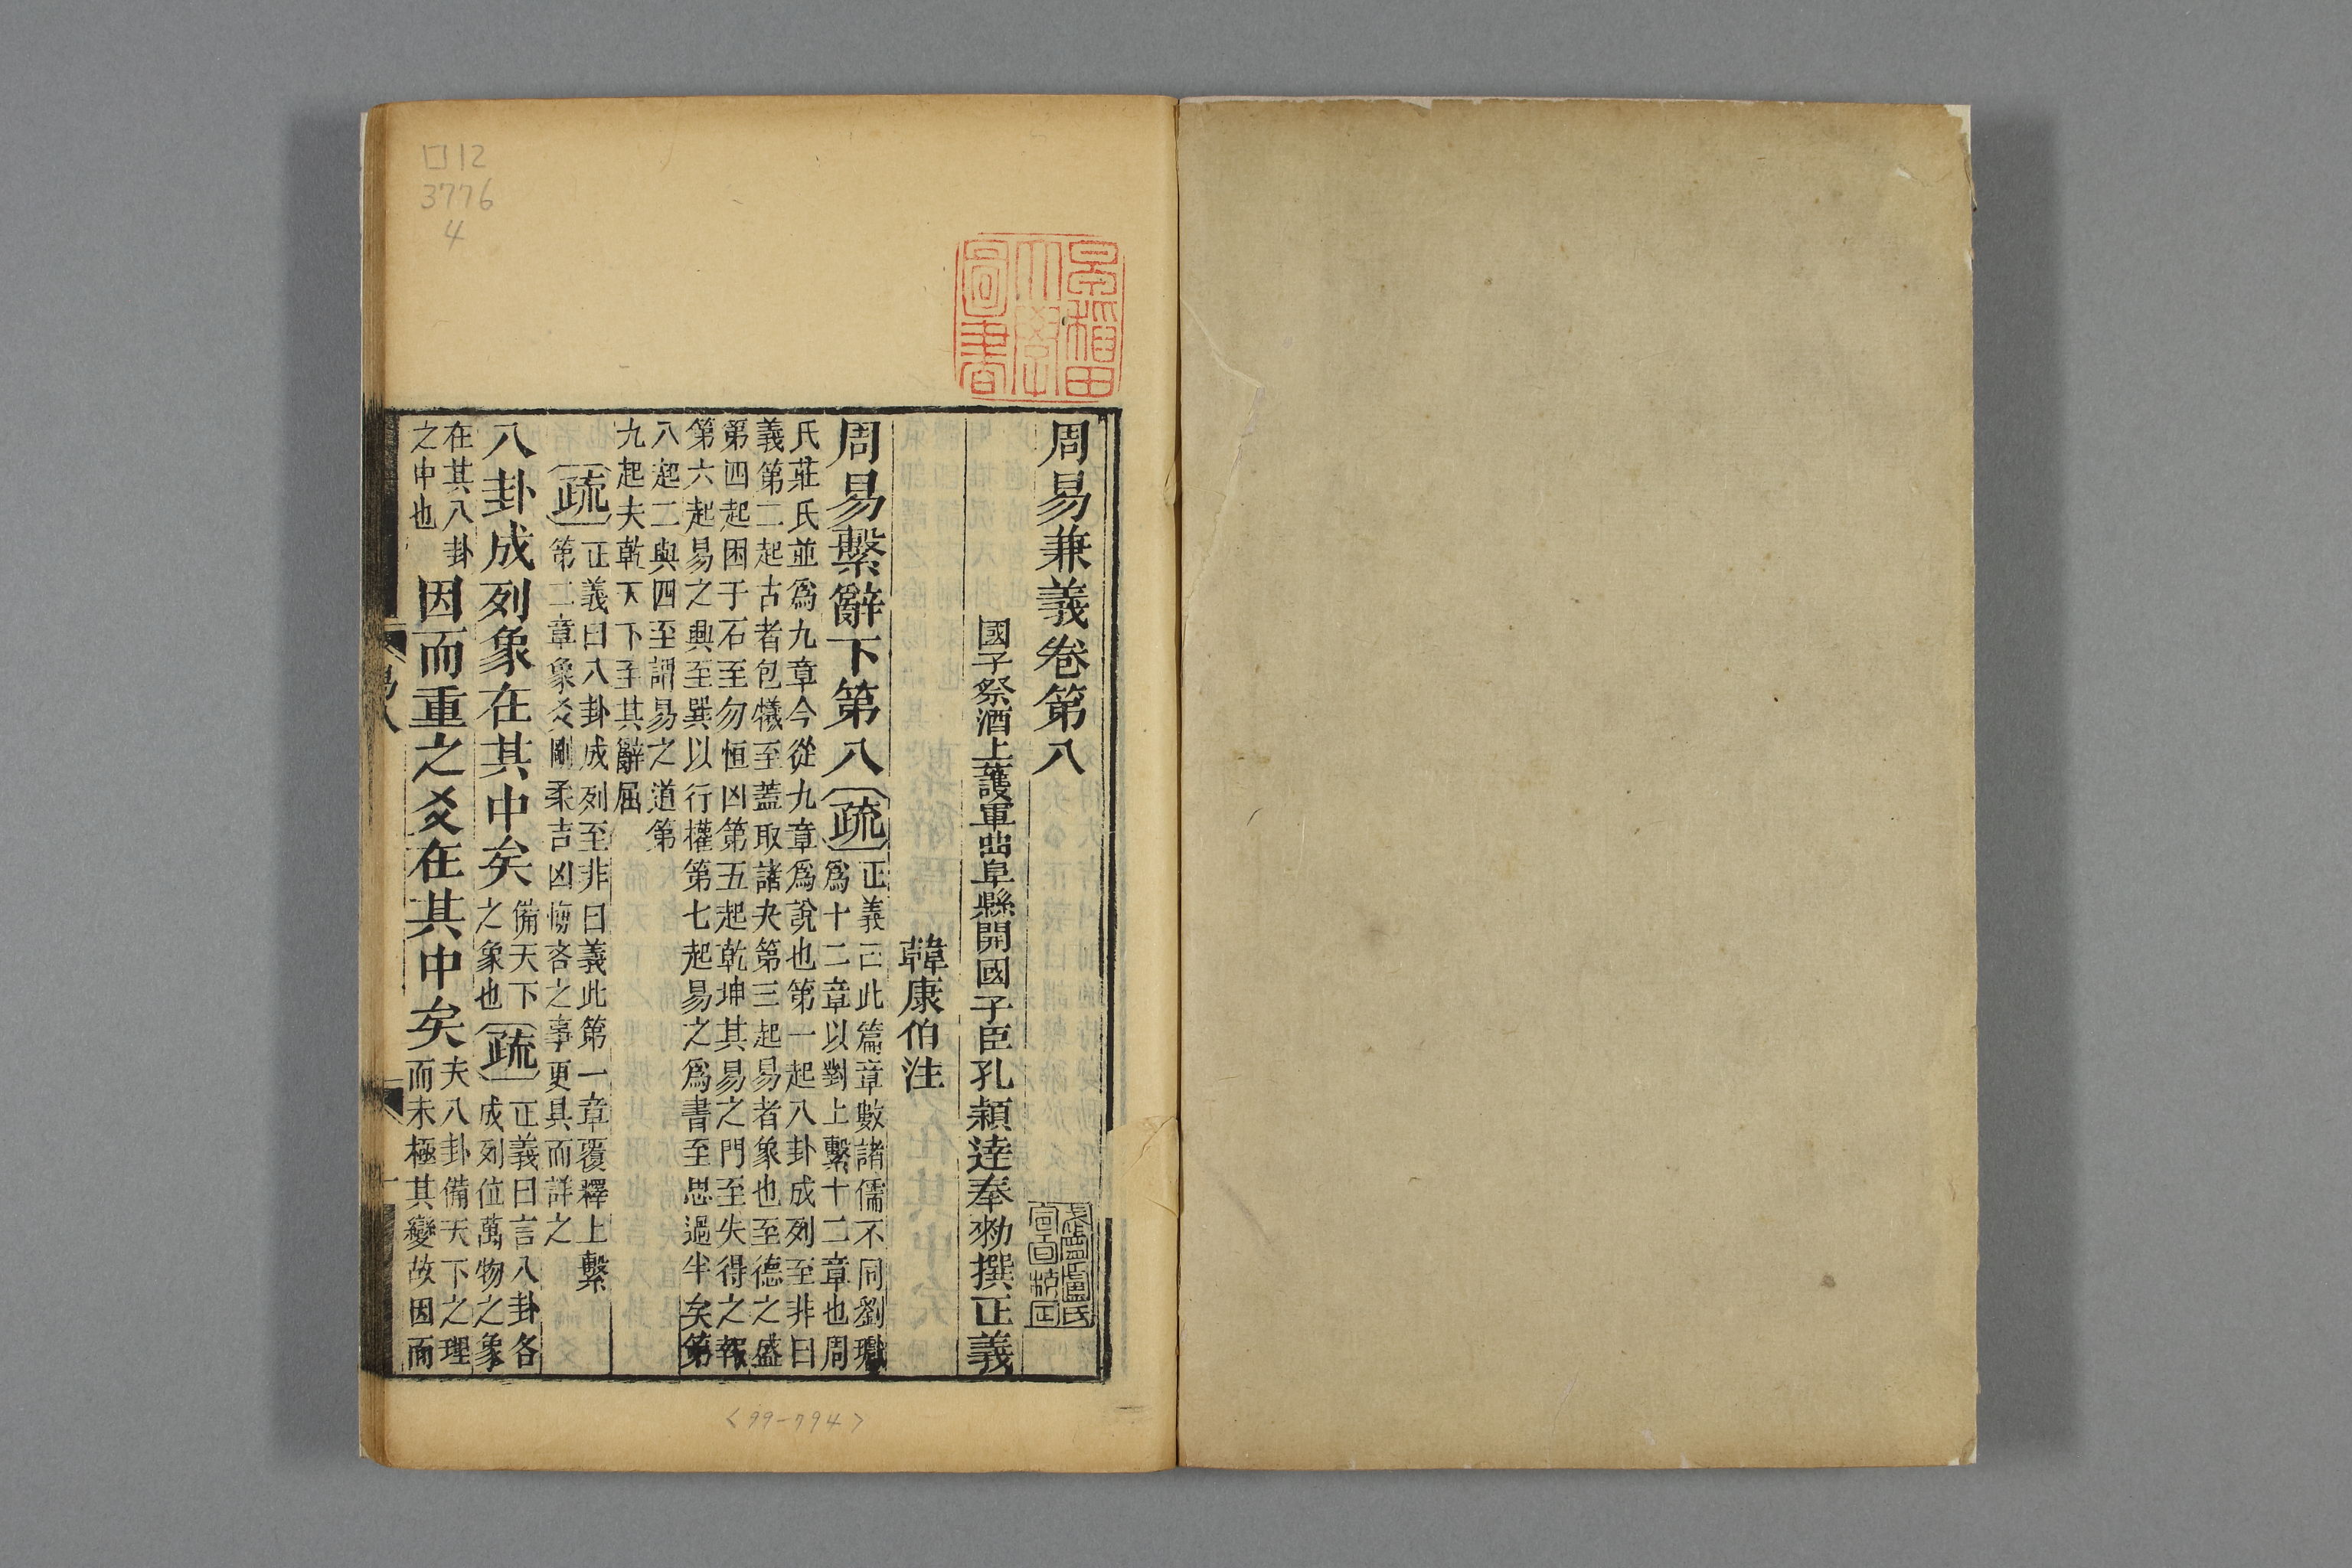 周易兼義卷第八
國子祭酒上護軍曲阜縣開國子臣孔穎達奉勑撰正義
韓康伯注
周易繫辭下第八
疏
正義曰此篇章數諸儒不同劉瓛
爲十二章以對上繫十二章也周
氏莊氏並爲九章今從九章爲說也第一起八卦成列至非曰
義第二起古者包犧至蓋取諸夬第三起易者象也至德之盛
第四起困于石至勿恒凶第五起乾坤其易之門至失得之報
第六起易之興至巽以行權第七起易之爲書至思過半矣第
八起二與四至謂易之道第
九起夫乾天下至其辭屈
疏
正義曰八卦成列至非曰義此第一章覆釋上繫
第二章象爻剛柔吉凶悔吝之事更具而詳之
八卦成列象在其中矣
備天下
之象也
疏
正義曰言八卦各
成列位萬物之象
在其八卦
之中也
因而重之爻在其中矣
夫八卦備天下之理
而未極其變故因而
易八
一
早稻田
大學
圖書
ロ12
3776
4
<99-794>